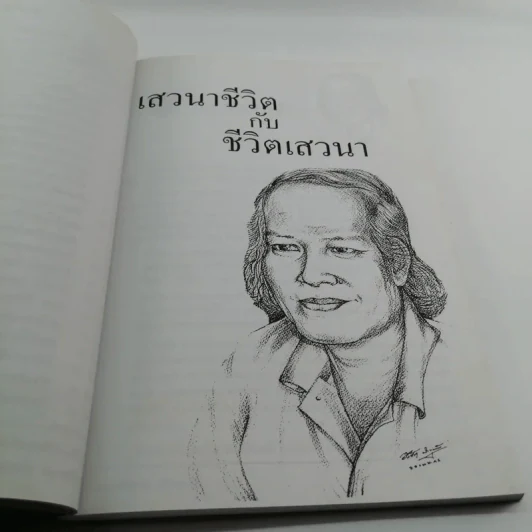 เสวนาชีวิต
กับ
ชีวิตเสวนา